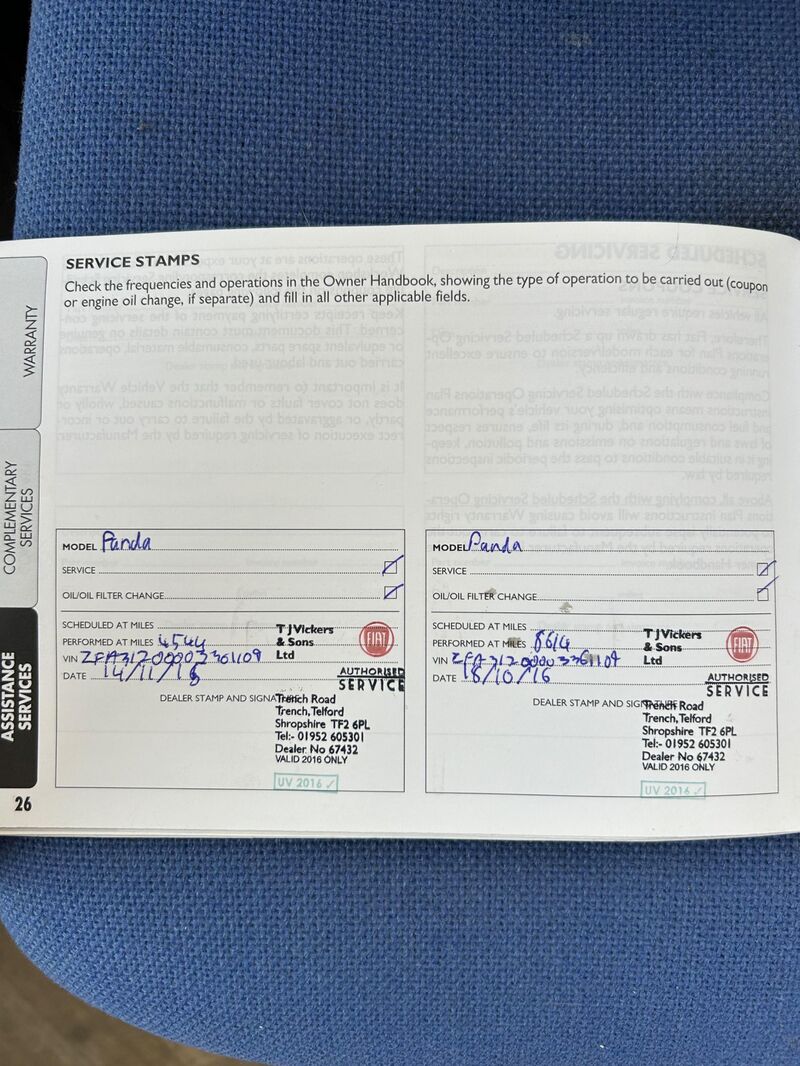 SERVICE STAMPS
Check the frequencies and operations in the Owner Handbook, showing the type of operation to be carried out (coupon
or engine oil change, if separate) and fill in all other applicable fields.
WARRANTY
COMPLEMENTARY
SERVICES
ASSISTANCE
SERVICES
26
MODEL Panda
SERVICE
OIL/OIL FILTER CHANGE
SCHEDULED AT MILES
PERFORMED AT MILES 4544
VIN ZFA31200003361109
DATE 14/11/15
T J Vickers
& Sons
Ltd
FIAT
AUTHORISED
SERVICE
DEALER STAMP AND SIGNATURE
Trench Road
Trench, Telford
Shropshire TF2 6PL
Tel:- 01952 605301
Dealer No 67432
VALID 2016 ONLY
UV 2016 ✓
MODEL Panda
SERVICE
OIL/OIL FILTER CHANGE
SCHEDULED AT MILES
PERFORMED AT MILES 8614
VIN ZFA31200003361109
DATE 18/10/16
T J Vickers
& Sons
Ltd
FIAT
AUTHORISED
SERVICE
DEALER STAMP AND SIGNATURE
Trench Road
Trench, Telford
Shropshire TF2 6PL
Tel:- 01952 605301
Dealer No 67432
VALID 2016 ONLY
UV 2016 ✓